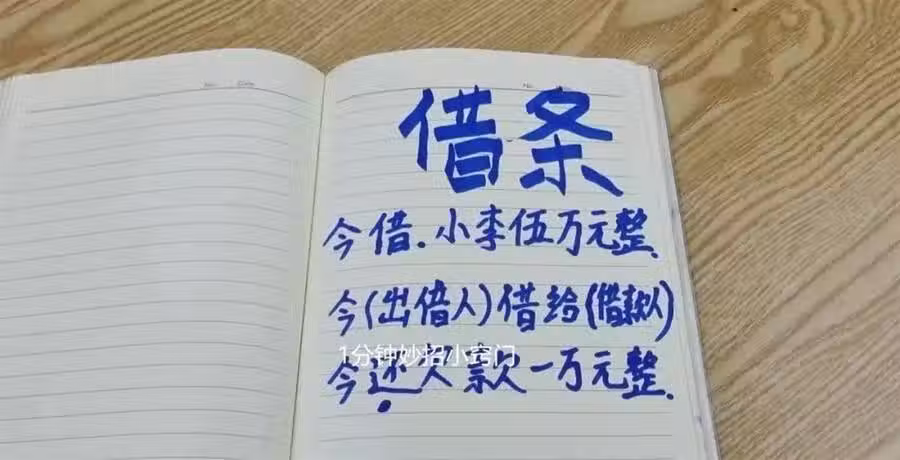 No. Date
No.
借条
今借.小李伍万元整.
今(出借人)借给(借款人)
1分钟妙招小窍门
今还欠款一万元整.